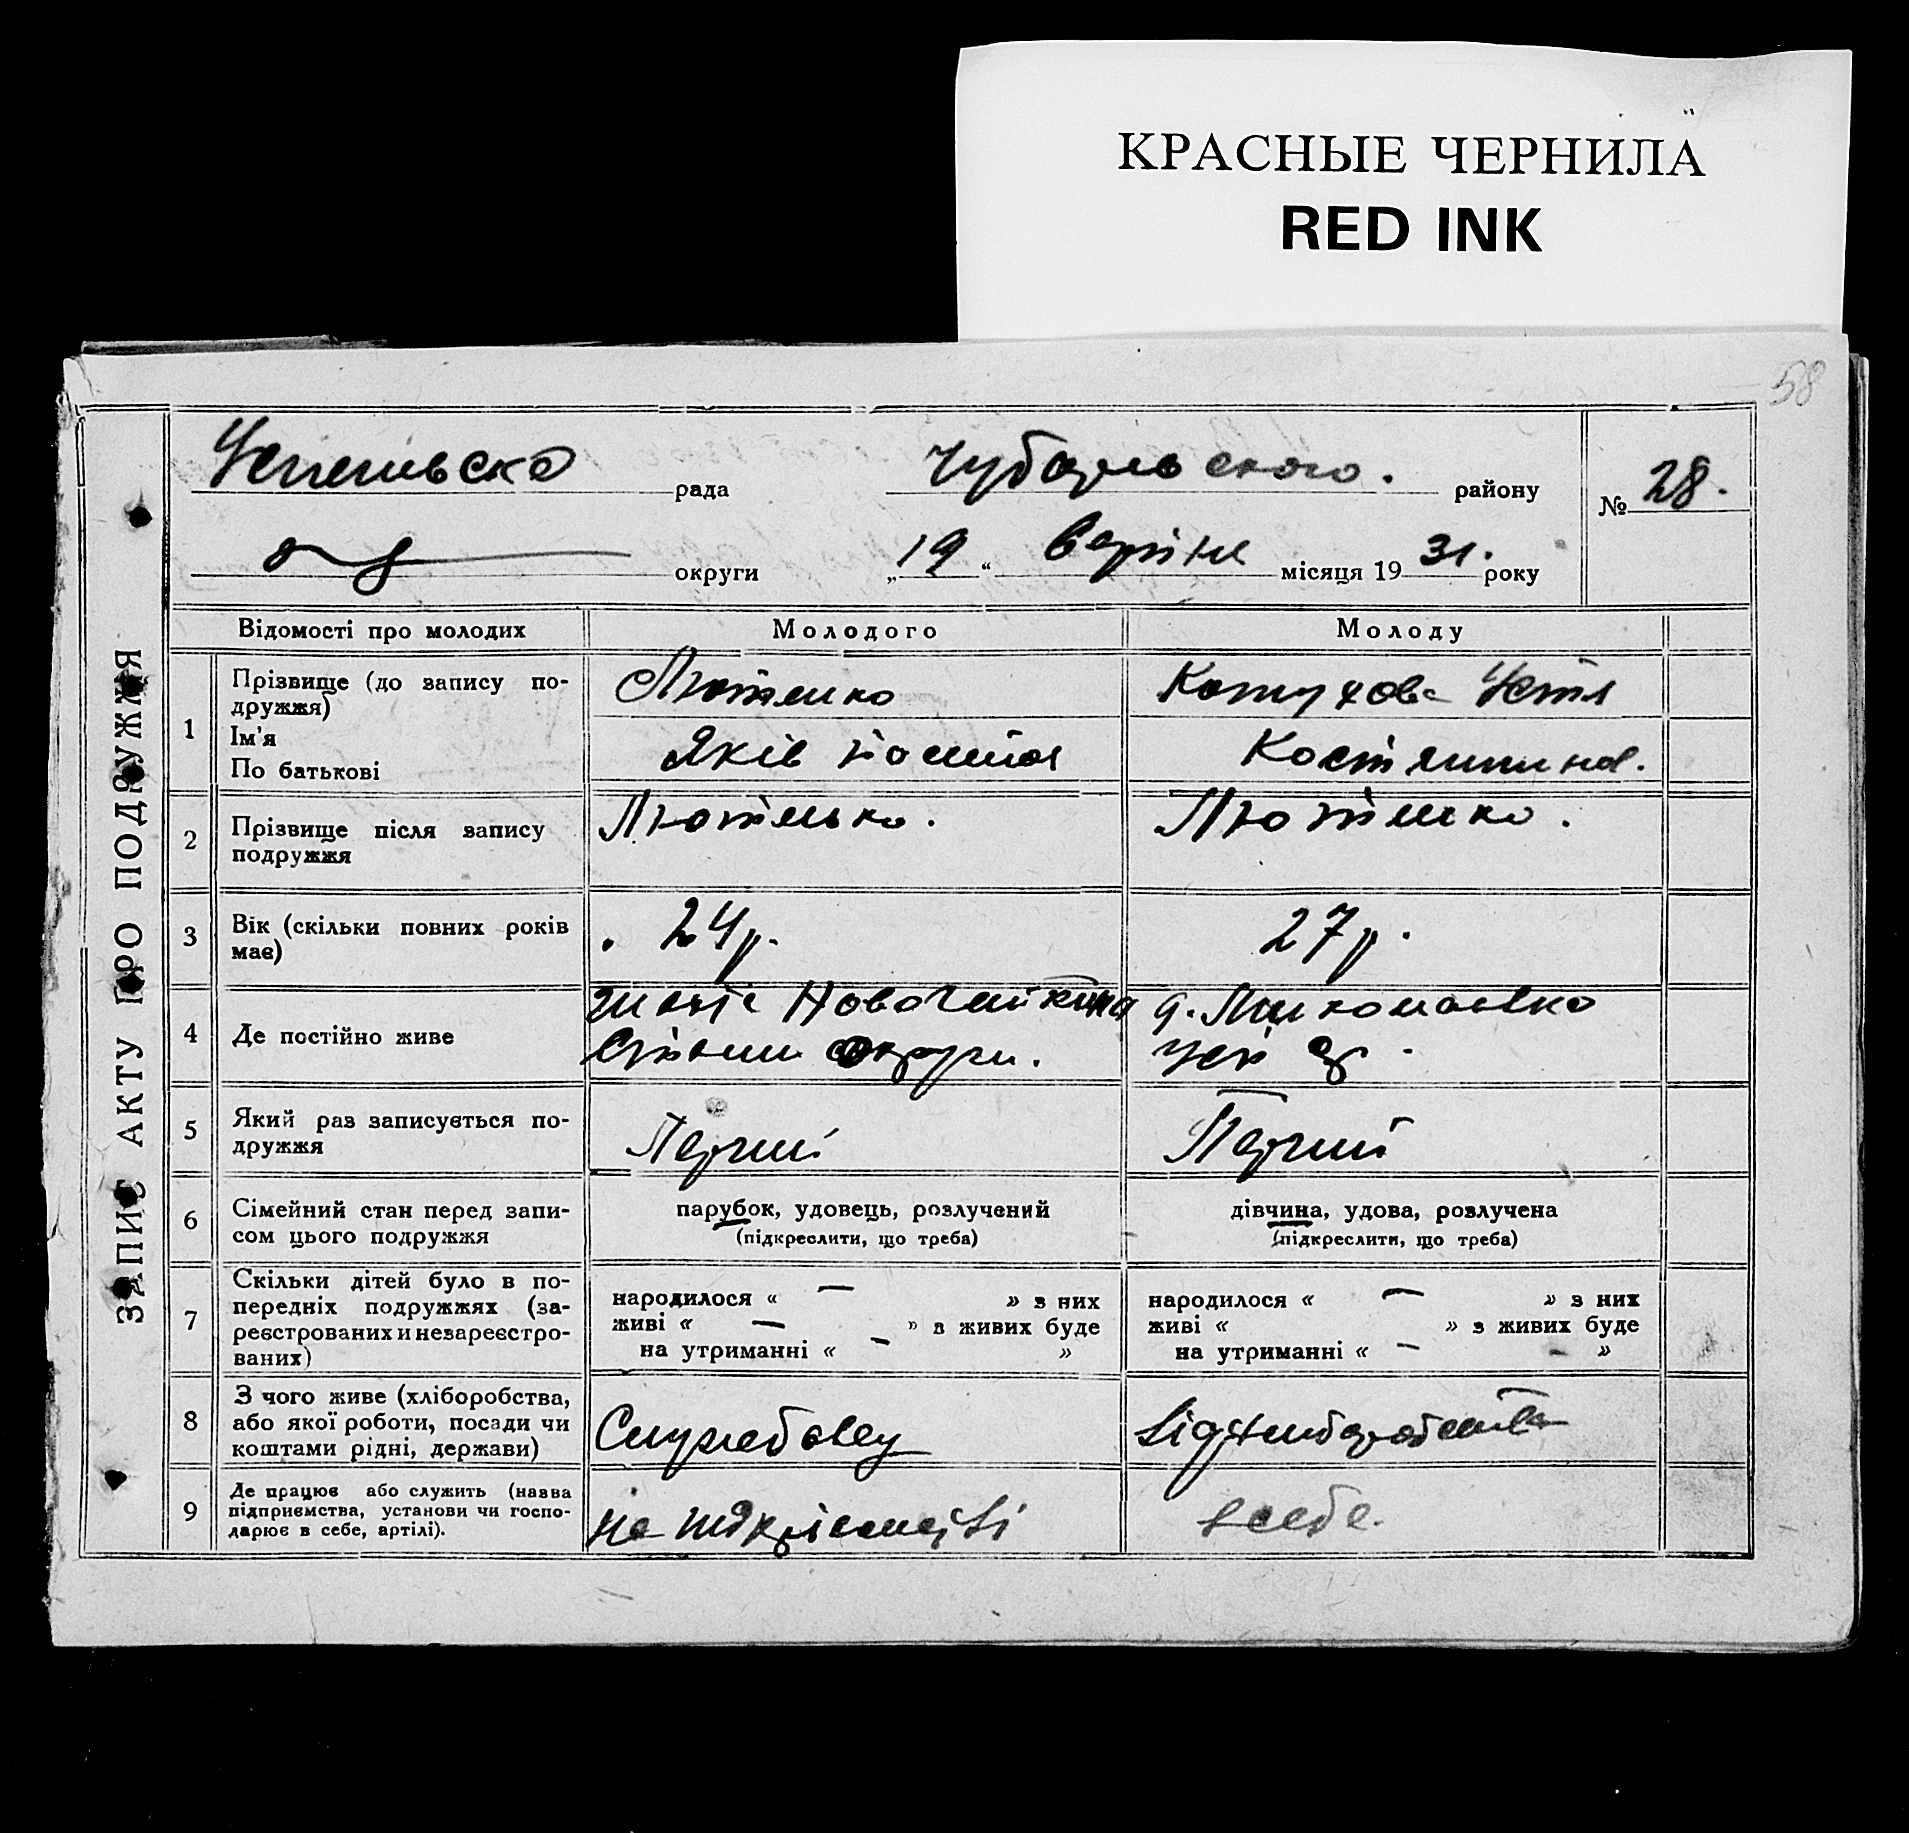 КРАСНЫЕ ЧЕРНИЛА
RED INK
58
рада Чубарівського. району № 28.
округи „19“ місяця 1931. року
ЗАПИС АКТУ ПРО ПОДРУЖЖЯ
Відомості про молодих Молодого Молоду
1 Прізвище (до запису по-
дружжя)
Ім'я
По батькові
Лютенко
Яків
Устя
2 Прізвище після запису
подружжя
Лютенько. Лютенко.
3 Вік (скільки повних років
має)
24 р. 27 р.
4 Де постійно живе
5 Який раз записується по-
дружжя
Перший Перший
6 Сімейний стан перед запи-
сом цього подружжя
парубок, удовець, розлучений
(підкреслити, що треба)
дівчина, удова, розлучена
(підкреслити, що треба)
7 Скільки дітей було в по-
передніх подружжях (за-
реєстрованих и незареєстро-
ваних)
народилося « — » з них
живі « — » з живих буде
на утриманні « — »
народилося « — » з них
живі « » з живих буде
на утриманні « — — »
8 З чого живе (хліборобства,
або якої роботи, посади чи
коштами рідні, держави)
Службовец
від хліборобства
9 Де працює або служить (назва
підприємства, установи чи госпо-
дарює в себе, артілі).
на підприємстві
в себе.